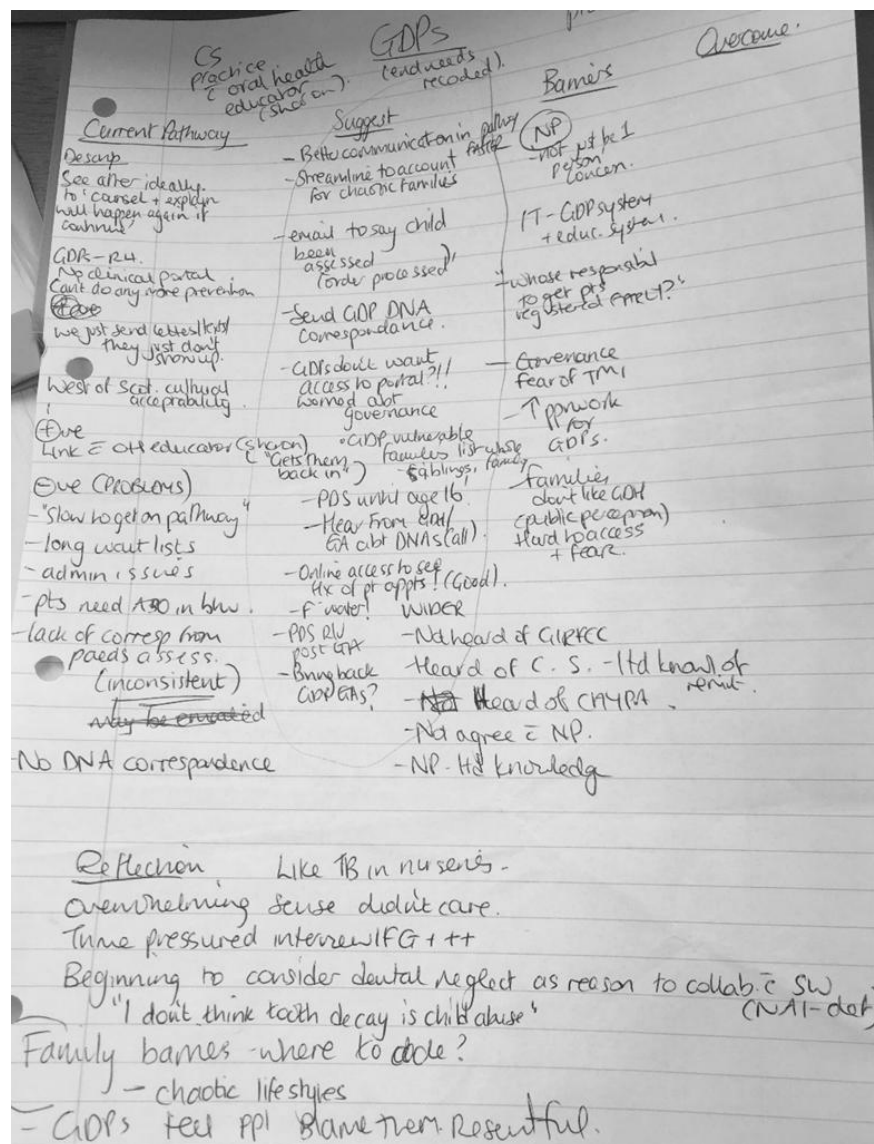 CS
practice
(oral health
educator
(sharon).
GDPs
(end needs
recoded).
Barriers
Overcome.
Current Pathway
Descrip
See after ideally.
to 'counsel + explain
will happen again if
continue'
GDPs - R4.
No clinical portal.
Can't do any more prevention
we just send letters/texts/
they just don't
show up.
West of Scot. cultural
acceptability.
⊕ve
Link c̄ OH educator (sharon)
("Gets them
back in")
⊖ve (PROBLEMS)
- "slow to get on pathway"
- long wait lists
- admin issues
- pts need A30 in btw.
- lack of corresp from
paeds assess.
(inconsistent)
- No DNA correspondence
Suggest
- Better communication in pathway
FASTER
- Streamline to account
for chaotic families
- email to say child
been
assessed
(order processed)'
- Send GDP DNA
correspondance.
- GDPs don't want
access to portal?!!
worried abt
governance
• GDP vulnerable
families list whole
- siblings, family
- PDS until age 16
- Hear from GDH/
GA abt DNAs (all).
- Online access to see
Hx of pt appts! (Good).
- F⁻ water!
- PDS RV
post GA
- Bring back
GDP GAs?
NP
- not just be 1
person
concern.
IT - GDP system
+ educ. system.
- "whose responsibil
to get pts
registered
- Governance
fear of TMI
- ↑ pprwork
for
GDPs.
- families
don't like GDH
(public perception)
Hard to access
+ fear.
WIDER
- Not heard of GIRFEC
- Heard of C.S. - ltd knowl of
remit.
- Heard of CHYPA.
- Not agree c̄ NP.
- NP - ltd knowledge
Reflection Like TB in nurseries -
Overwhelming sense didn't care.
Time pressured interview/FG +++
Beginning to consider dental neglect as reason to collab c̄ SW
"I don't think tooth decay is child abuse"
(NAI - def
Family barriers - where to code?
- chaotic lifestyles
- GDPs feel ppl Blame them. Resentful.